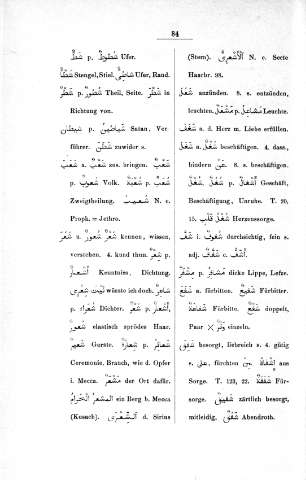 84
شَطّ p. شُطُوط Ufer.
شَطْأ Stengel, Stiel. شَاطِئ Ufer, Rand.
شَطْر p. شُطُور Theil, Seite. شَطْرَ in
Richtung von.
شَيْطَان p. شَيَاطِين Satan, Ver-
führer. شَطَنَ zuwider s.
شَعَبَ u. شَعَّبَ zus. bringen. شَعْب
p. شُعُوب Volk. شُعْبَة p. شُعَب
Zweigtheilung. شُعَيْب N. e.
Propk. = Jethro.
شَعَرَ u. شَعُرَ kennen, wissen,
verstehen. 4. kund thun. شِعْر p.
أَشْعَار Kenntniss, Dichtung.
لَيْتَ شِعْرِى wüsste ich doch. شَاعِر
p. شُعَرَاء Dichter. شَعْر p. أَشْعَار,
شُعُور elastisch sprödes Haar.
شَعِير Gerste. شَعِيرَة p. شَعَائِر
Ceremonie, Brauch, wie d. Opfer
i. Mecca. مَشْعَر der Ort dafür.
المَشْعَر الحَرَام ein Berg b. Mecca
(Kusach). الشِّعْرَى d. Sirius
(Stern). الْأَشْعَرِىّ N. e. Secte
Haarbr. 98.
شَعَلَ anzünden. 8. s. entzünden,
leuchten. مَشْعَل p. مَشَاعِل Leuchte.
شَغَفَ s. d. Herz m. Liebe erfüllen.
شَغَلَ u. شَغَّلَ beschäftigen. 4. dass.,
hindern عن. 8. s. beschäftigen.
شُغْل, شَغْل p. أَشْغَال Geschäft,
Beschäftigung, Unruhe. T. 20,
15. شُغْل قَلْب Herzenssorge.
شَفَّ i. شُفُوف durchsichtig, fein s.
adj. شَفّ u. أَشَفّ.
مِشْفَر p. مَشَافِر dicke Lippe, Lefze.
شَفَعَ Fürbitten. شَفِيع Fürbitter.
شَفَاعَة Fürbitte. شَفْع doppelt,
Paar × وَتْر einzeln.
شَفِقَ besorgt, liebreich s. 4. gütig
s. على, fürchten من. إِشْفَاق aus
Sorge. T. 123, 22. شَفَقَة Für-
sorge. شَفِيق zärtlich besorgt,
mitleidig. شَفَق Abendroth.